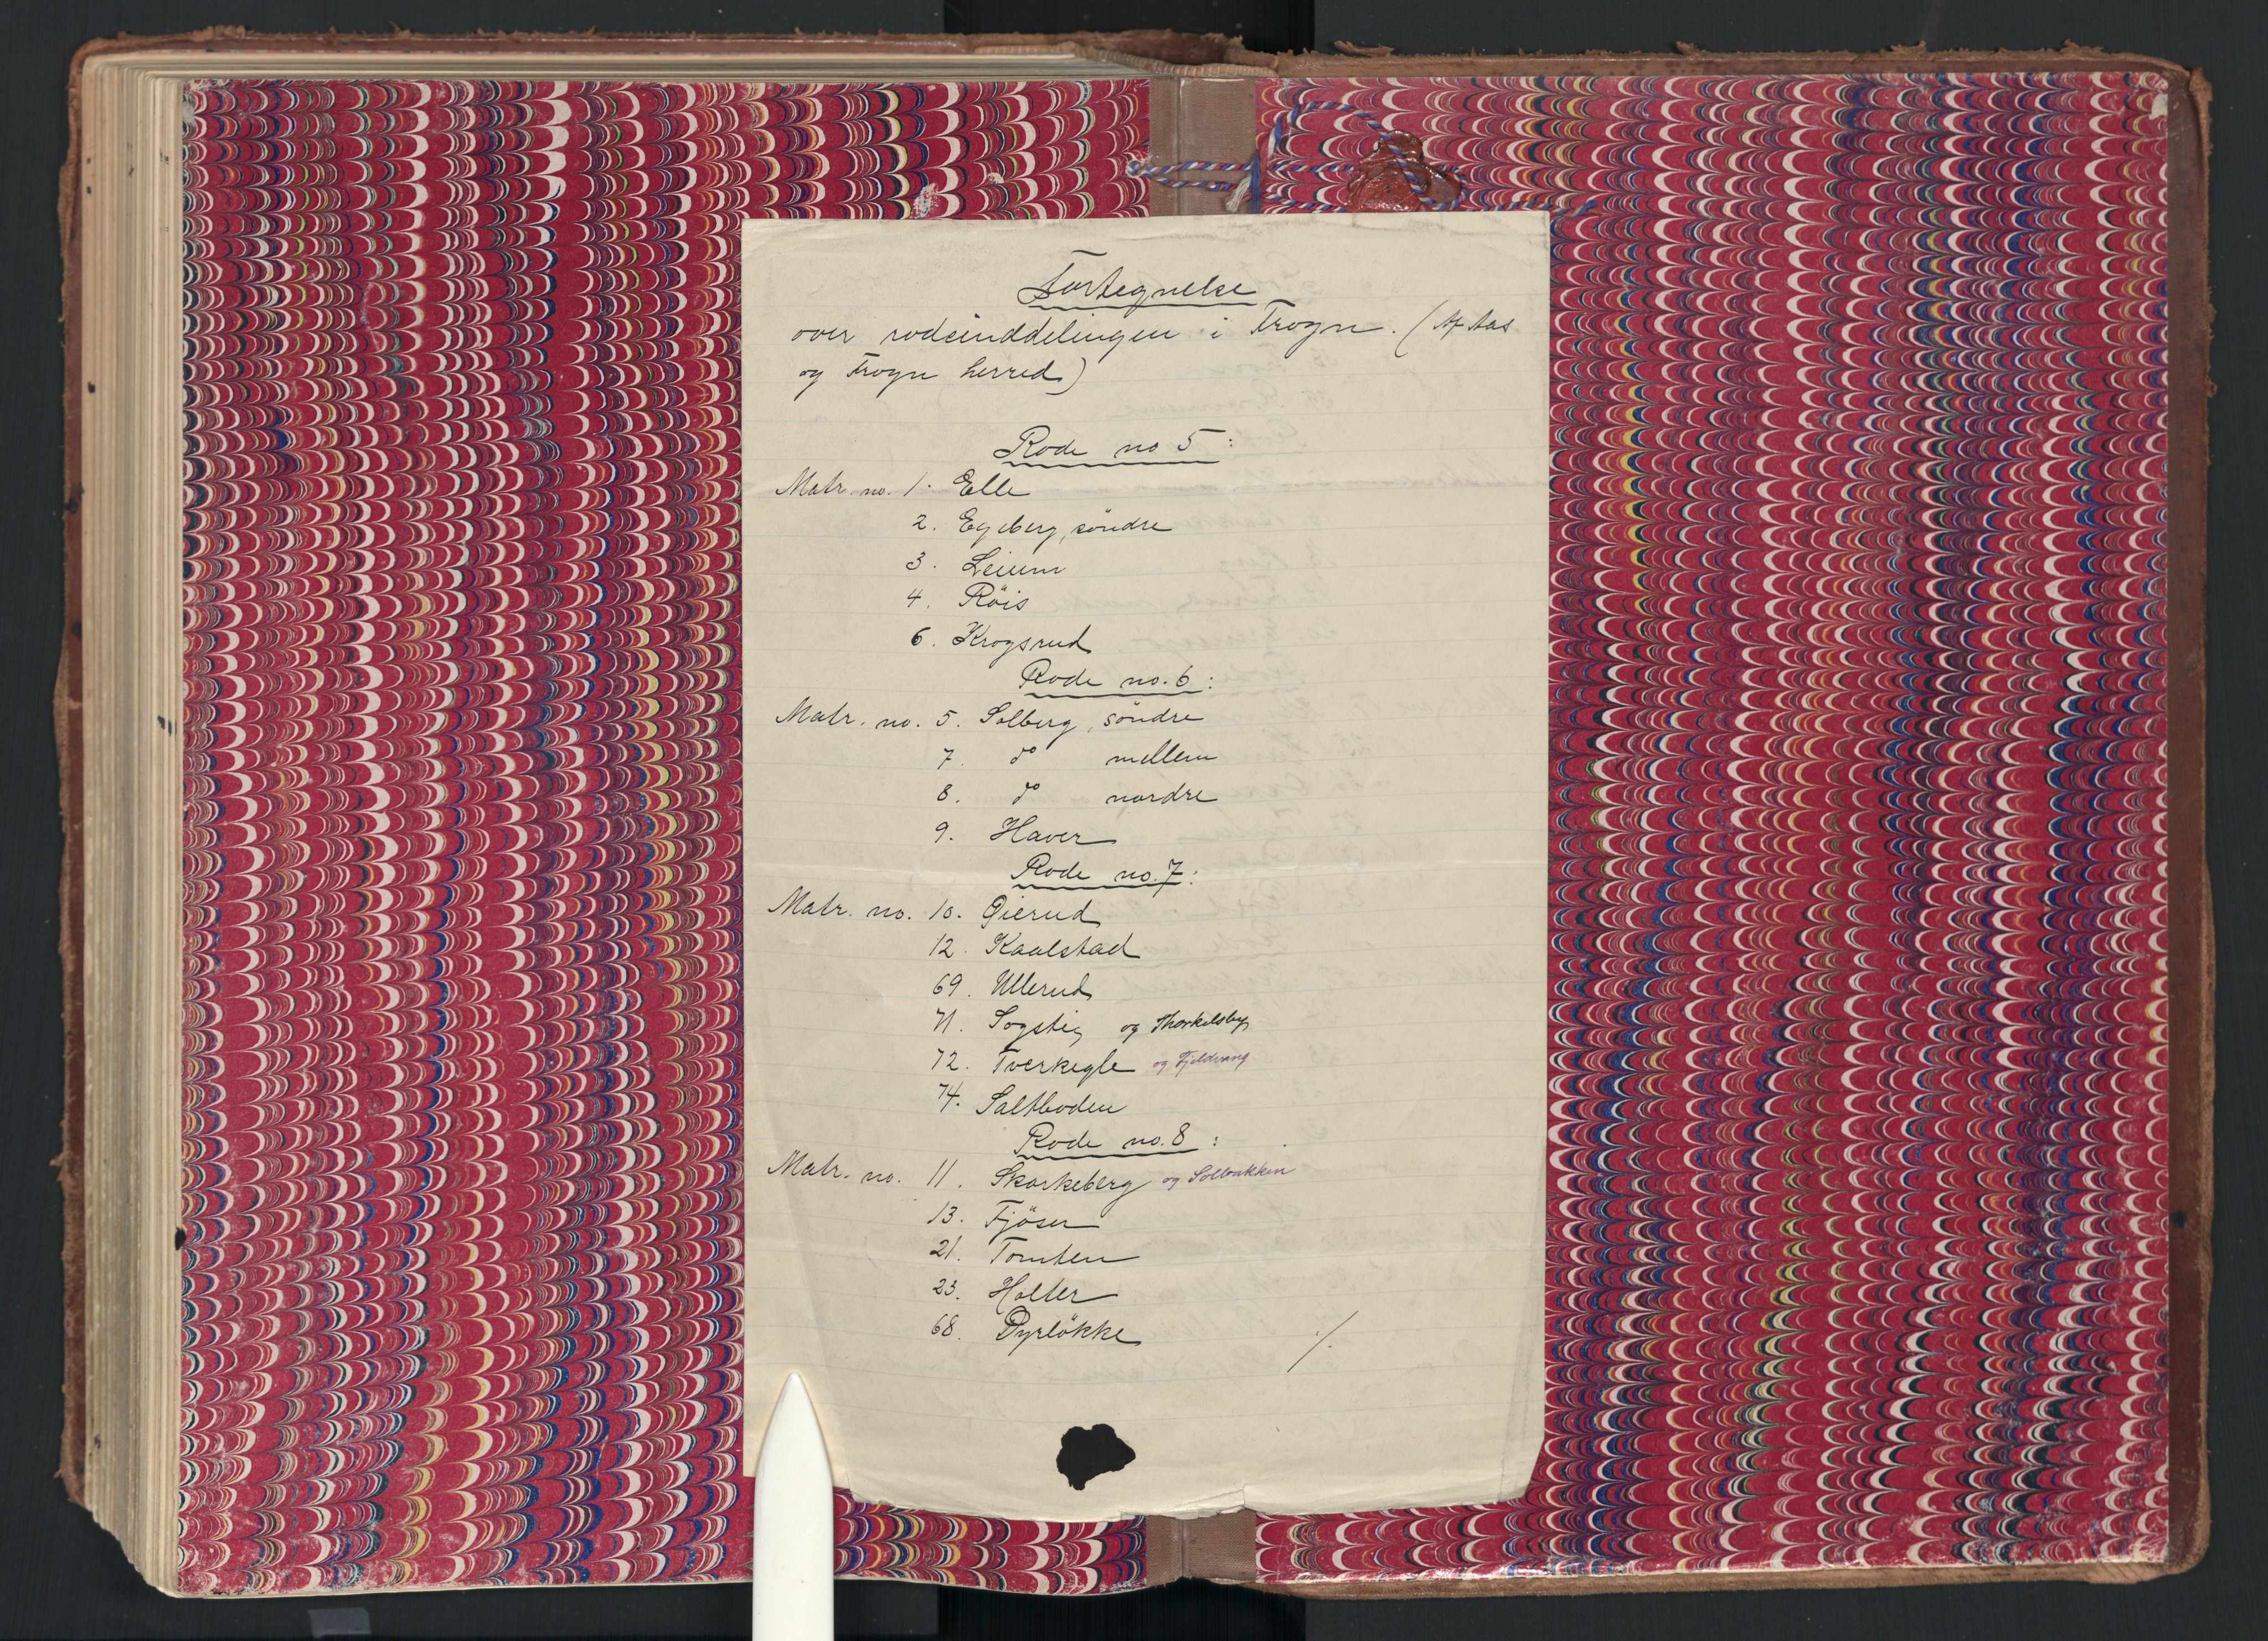 Fortegnelse
over rodeinddelingen i Frogn. (Af Aas
og Frogn herred)
Rode no 5:
Matr. no. 1. Elle
2. Egeberg, söndre
3. Leium
4. Röis
6. Krogsrud
Rode no. 6:
Matr. no. 5. Solberg, söndre
7. do mellem
8. do nordre
9. Haver
Rode no. 7:
Matr. no. 10. Gierud
12. Kaalstad
69. Ullerud
71. Sogsti, og Thorkelsby
72. Tverkegle og Fjeldvang
74. Saltboden
Rode no. 8:
Matr. no. 11. Skorkeberg og Solbakken
13. Fjöser
21. Tomten
23. Holter
68. Dyrlökke
./.